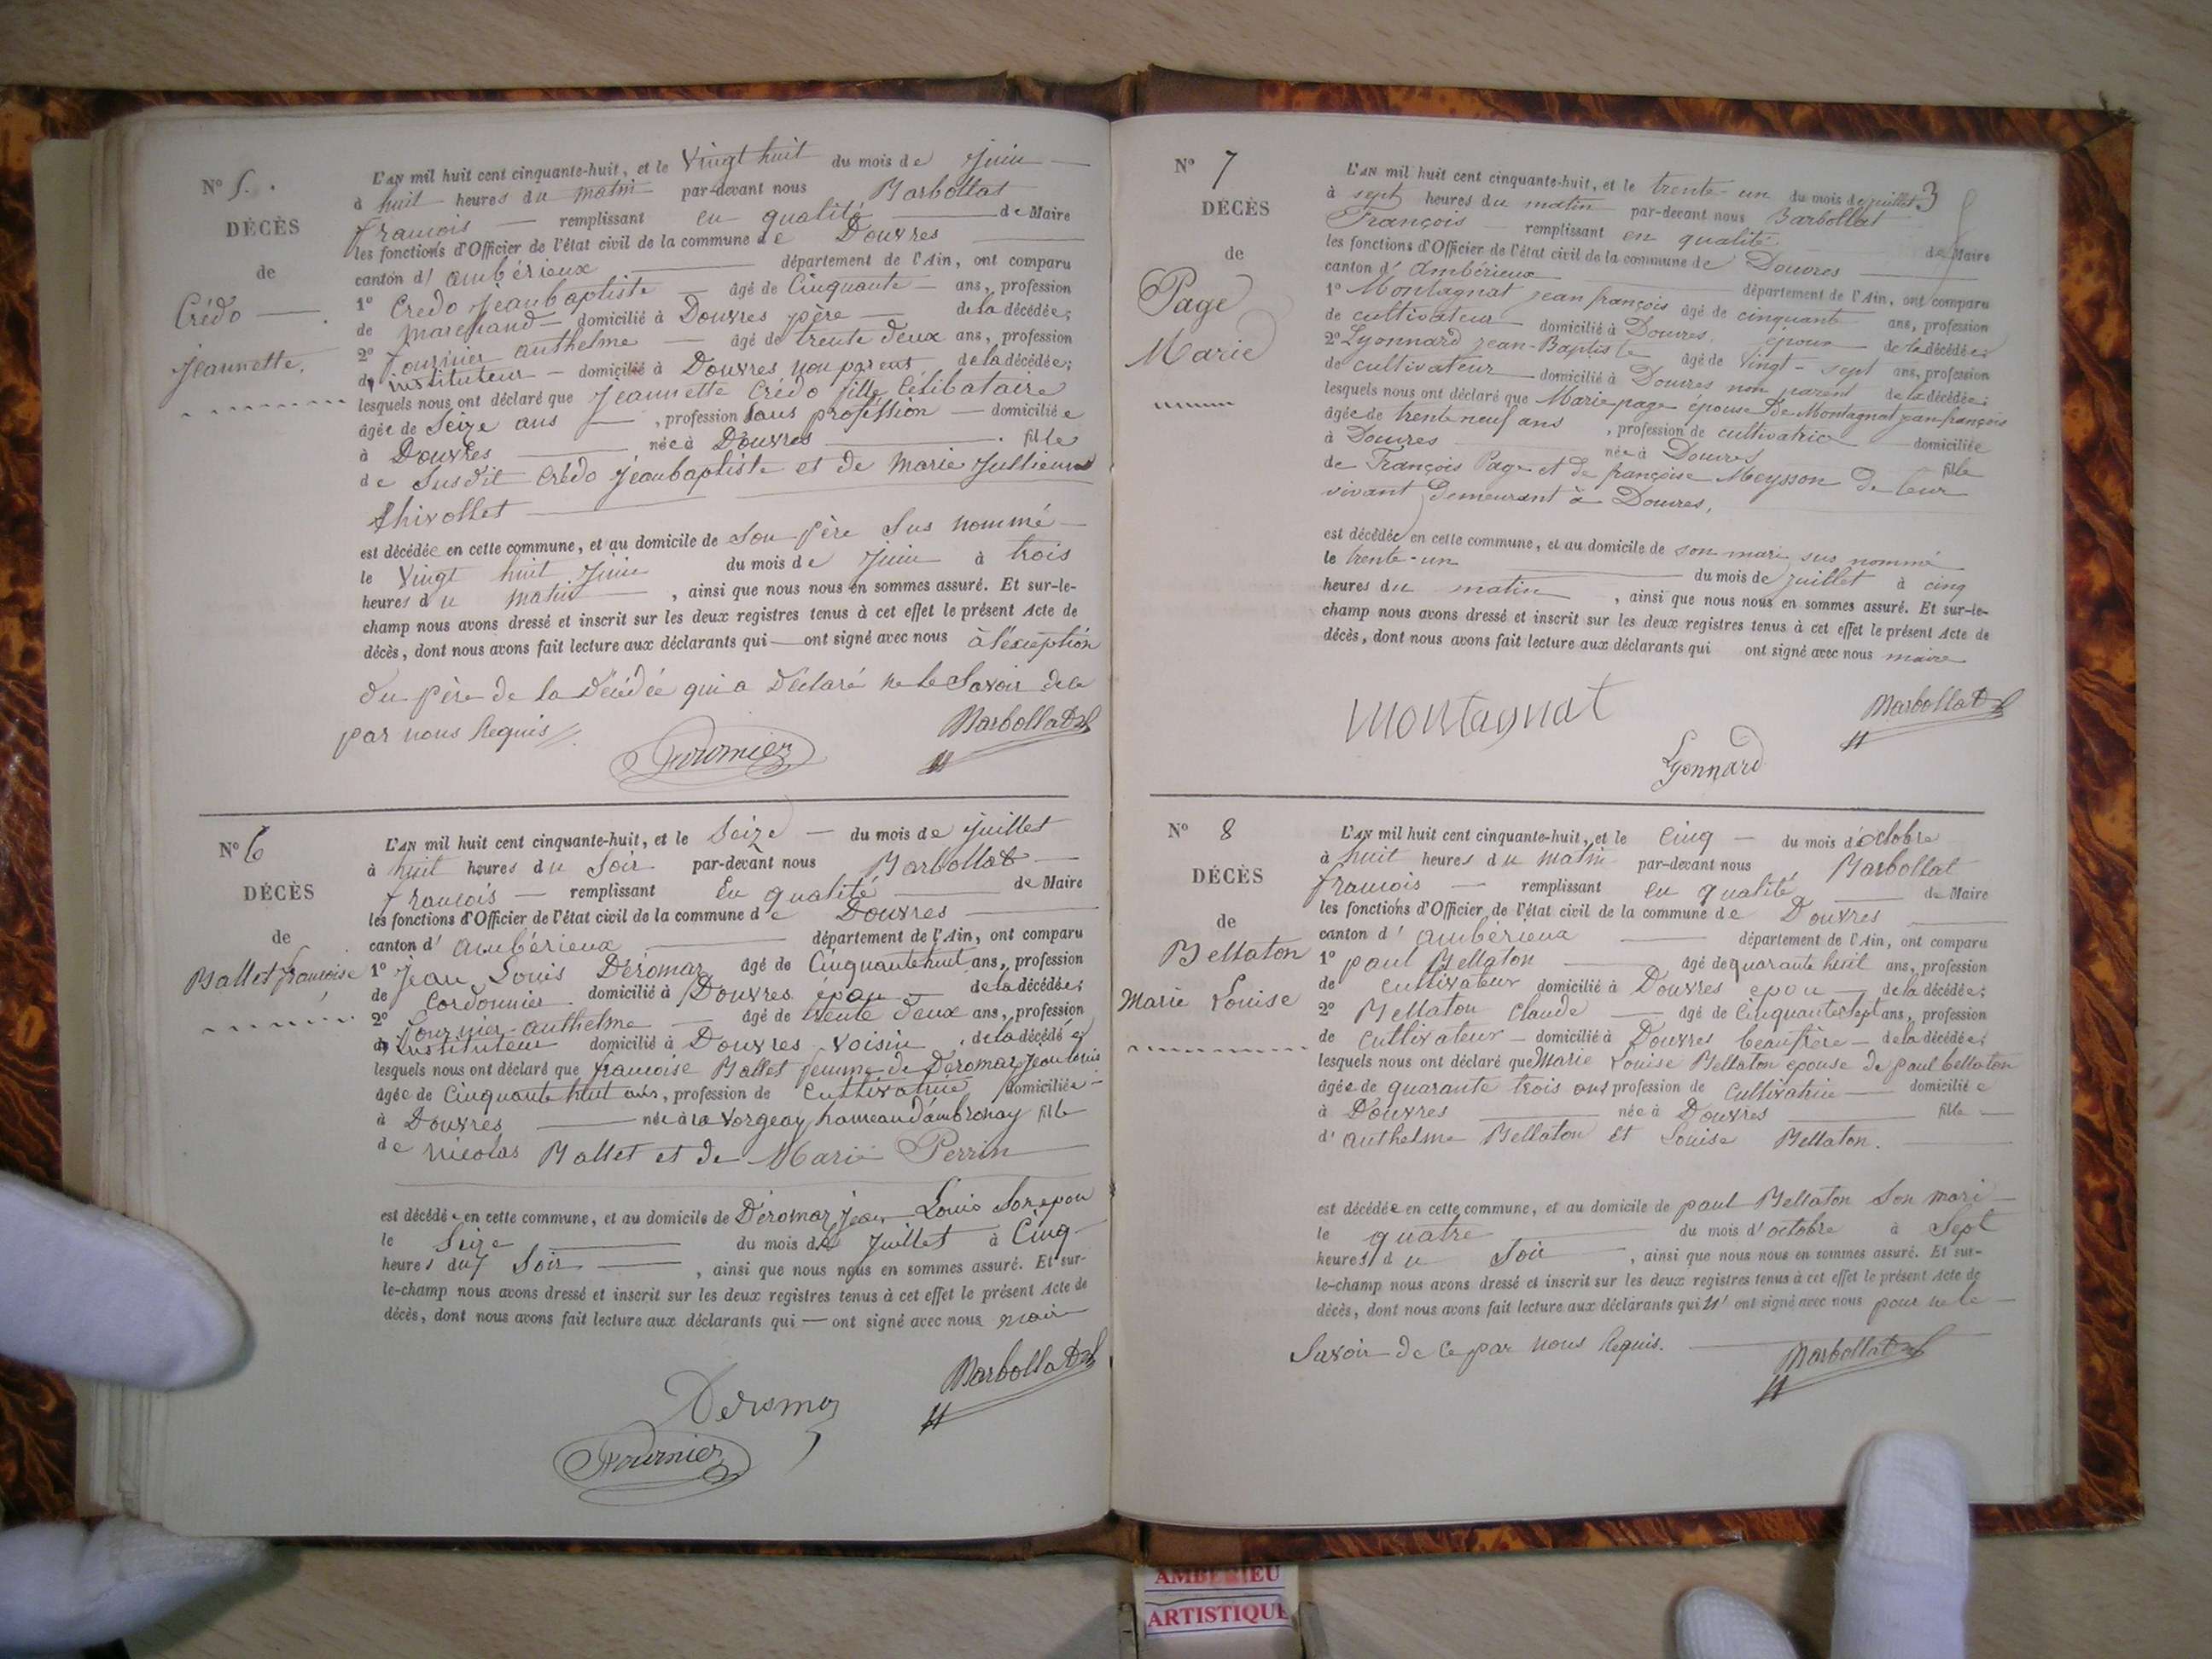 N° 5.
DÉCÈS
de
Crédo
Jeannette.
L'AN mil huit cent cinquante-huit, et le Vingt huit du mois de Juin
à huit heures du matin par-devant nous Barbollat
francois remplissant en qualité de Maire
les fonctions d'Officier de l'état civil de la commune de Douvres
canton d' ambérieux département de l'Ain, ont comparu
1° Credo Jeanbaptiste âgé de Cinquante ans, profession
de marchand domicilié à Douvres père de la décédée;
2° fournier anthelme âgé de trente deux ans, profession
d' instituteur domicilié à Douvres non parent de la décédée;
lesquels nous ont déclaré que Jeannette Crédo fille Célibataire
âgée de Seize ans , profession sans profession domiciliée
à Douvres née à Douvres fille
de Susdit Crédo Jeanbaptiste et de Marie Jullienne
thivollet
est décédée en cette commune, et au domicile de Son père Sus nommé
le Vingt huit Juin du mois de Juin à trois
heures du matin , ainsi que nous nous en sommes assuré. Et sur-le-
champ nous avons dressé et inscrit sur les deux registres tenus à cet effet le présent Acte de
décès, dont nous avons fait lecture aux déclarants qui ont signé avec nous à l'exception
du père de la Décédée qui a Déclaré ne le Savoir de ce
par nous Requis
Fournier Barbollat
N° 6
DÉCÈS
de
Ballet francoise
L'AN mil huit cent cinquante-huit, et le Seize du mois de Juillet
à huit heures du Soir par-devant nous Barbollat
francois remplissant En qualité de Maire
les fonctions d'Officier de l'état civil de la commune de Douvres
canton d' ambérieux département de l'Ain, ont comparu
1° Jean Louis Déromaz âgé de Cinquante huit ans, profession
de Cordonnier domicilié à Douvres épou de la décédée;
2° Fournier anthelme âgé de trente deux ans, profession
d' instituteur domicilié à Douvres Voisin de la décédée
lesquels nous ont déclaré que francoise Ballet femme de Déromaz Jean louis
âgée de Cinquante huit ans, profession de Cultivatrice domiciliée
à Douvres née à la Vorgeay hameau d'ambronay fille
de nicolas Ballet et de Marie Perrin
est décédée en cette commune, et au domicile de Déromaz Jean Louis Son epou
le Seize du mois de Juillet à Cinq
heures du Soir , ainsi que nous nous en sommes assuré. Et sur-
le-champ nous avons dressé et inscrit sur les deux registres tenus à cet effet le présent Acte de
décès, dont nous avons fait lecture aux déclarants qui ont signé avec nous maire
Deromaz Barbollat
Fournier
3
N° 7
DÉCÈS
de
Page
Marie
L'AN mil huit cent cinquante-huit, et le trente-un du mois de juillet
à sept heures du matin par-devant nous Barbollat
François remplissant en qualité de Maire
les fonctions d'Officier de l'état civil de la commune de Douvres
canton d' Ambérieux département de l'Ain, ont comparu
1° Montagnat jean françois âgé de cinquante ans, profession
de cultivateur domicilié à Douvres, époux de la décédée;
2° Lyonnard jean-Baptiste âgé de Vingt-sept ans, profession
de cultivateur domicilié à Douvres non parent de la décédée;
lesquels nous ont déclaré que Marie page épouse de Montagnat jean françois
âgée de trente neuf ans , profession de cultivatrice domiciliée
à Douvres née à Douvres fille
de François Page et de françoise Meysson de leur
vivant demeurant à Douvres,
est décédée en cette commune, et au domicile de son mari sus nommé
le trente-un du mois de juillet à cinq
heures du matin , ainsi que nous nous en sommes assuré. Et sur-le-
champ nous avons dressé et inscrit sur les deux registres tenus à cet effet le présent Acte de
décès, dont nous avons fait lecture aux déclarants qui ont signé avec nous maire
Montagnat Barbollat
Lyonnard
N° 8
DÉCÈS
de
Bellaton
Marie Louise
L'AN mil huit cent cinquante-huit, et le Cinq du mois d'octobre
à huit heures du matin par-devant nous Barbollat
francois remplissant en qualité de Maire
les fonctions d'Officier de l'état civil de la commune de Douvres
canton d' ambérieux département de l'Ain, ont comparu
1° paul Bellaton âgé de quarante huit ans, profession
de Cultivateur domicilié à Douvres epou de la décédée;
2° Bellaton Claude âgé de Cinquante Sept ans, profession
de Cultivateur domicilié à Douvres beaufrère de la décédée;
lesquels nous ont déclaré que Marie Louise Bellaton epouse de paul bellaton
âgée de quarante trois ans profession de Cultivatrice domiciliée
à Douvres née à Douvres fille
d' anthelme Bellaton et Louise Bellaton.
est décédée en cette commune, et au domicile de paul Bellaton Son mari
le quatre du mois d'octobre à Sept
heures du Soir , ainsi que nous nous en sommes assuré. Et sur-
le-champ nous avons dressé et inscrit sur les deux registres tenus à cet effet le présent Acte de
décès, dont nous avons fait lecture aux déclarants qui n' ont signé avec nous pour ne le
Savoir de ce par nous Requis.
Barbollat
AMBERIEU
ARTISTIQUE